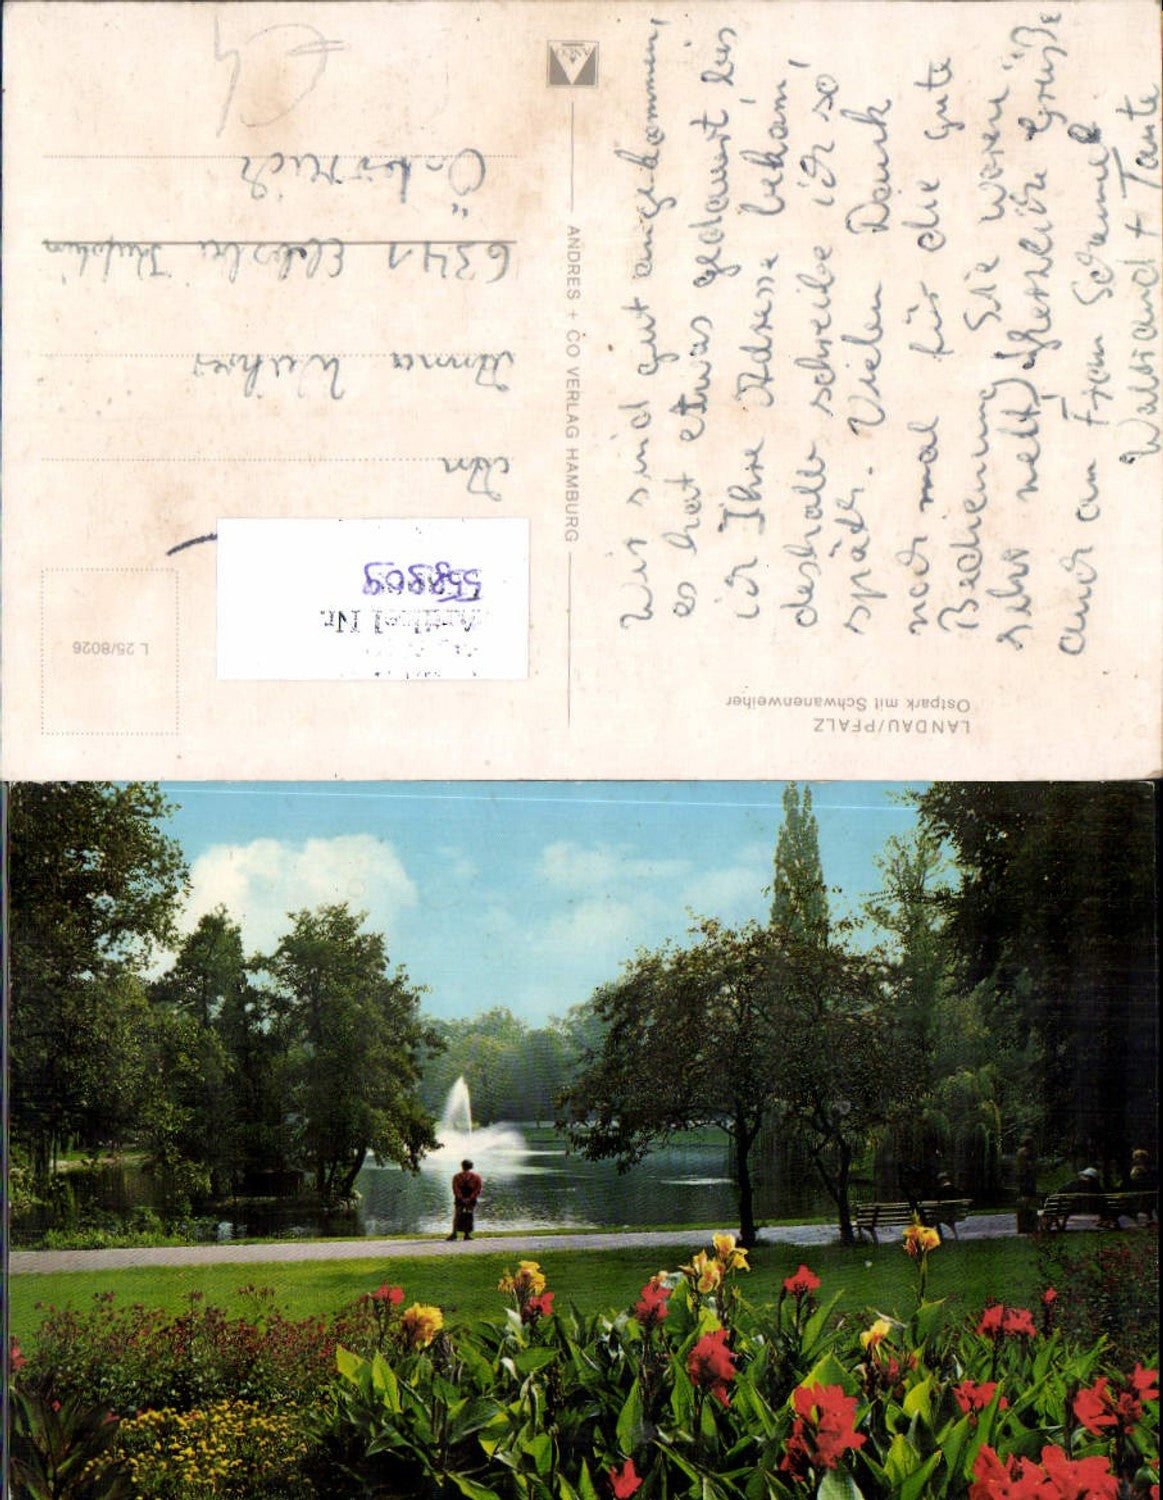 LANDAU/PFALZ
Ostpark mit Schwanenweiher
Wir sind gut angekommen,
es hat etwas gedauert bis
ich Ihre Adresse bekam,
deshalb schreibe ich so
spät. Vielen Dank
noch mal für die gute
Bedienung Sie waren
sehr nett, herzliche Grüße
auch an Frau
+ Tante
ANDRES + CO VERLAG HAMBURG
L 25/8026
Artikel Nr.
558909
An
Anna
6341 Ebbs bei Kufstein
Österreich